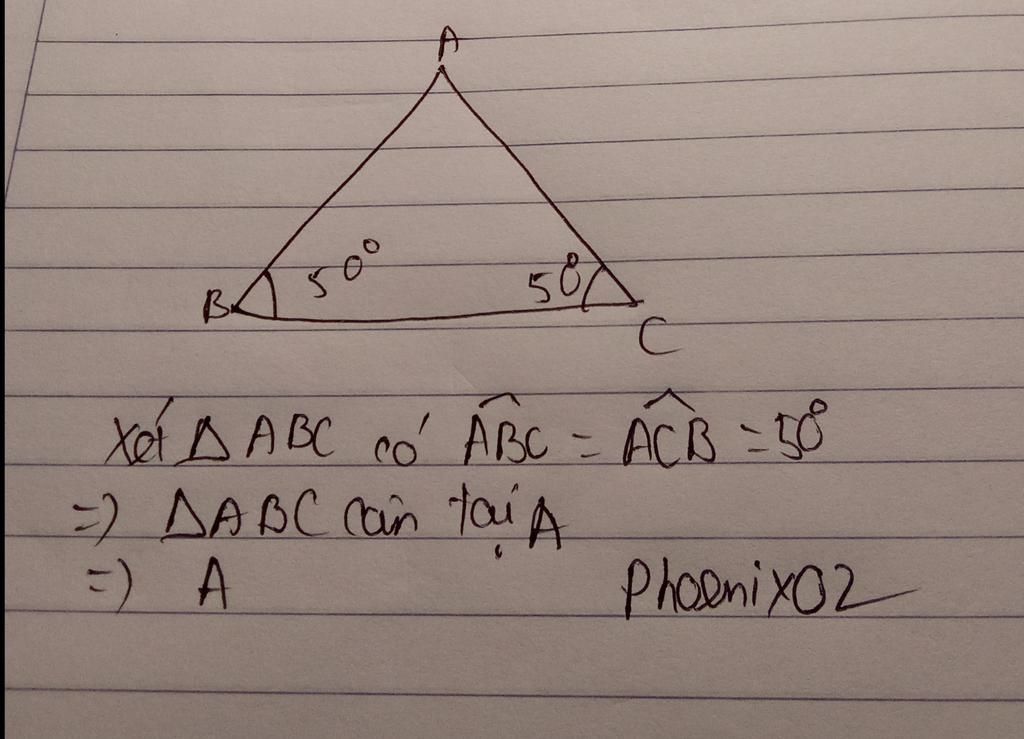 A
50°
50°
B
C
Xét Δ ABC có \widehat{ABC} = \widehat{ACB} = 50°
=) ΔABC cân tại A
=) A
Phoenix02